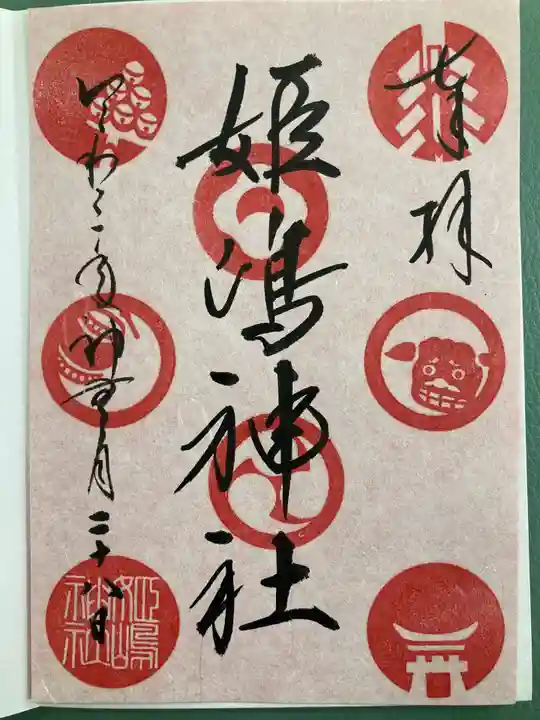 奉拝
姫嶋神社
令和三年神無月二十八日
姫嶋神社